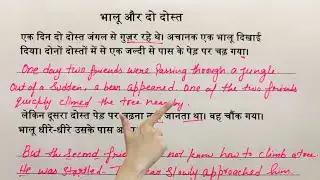 भालू और दो दोस्त
एक दिन दो दोस्त जंगल से गुज़र रहे थे। अचानक एक भालू दिखाई
दिया। दोनों दोस्तों में से एक जल्दी से पास के पेड़ पर चढ़ गया।
One day two friends were passing through a jungle.
Out of a sudden, a bear appeared. One of the two friends
quickly climed the tree nearby.
लेकिन दूसरा दोस्त पेड़ पर जानता था। वह चौंक गया।
भालू धीरे-धीरे उसके पास
But the second not know how to climb a tree.
He was startled. The bear slowly approached him